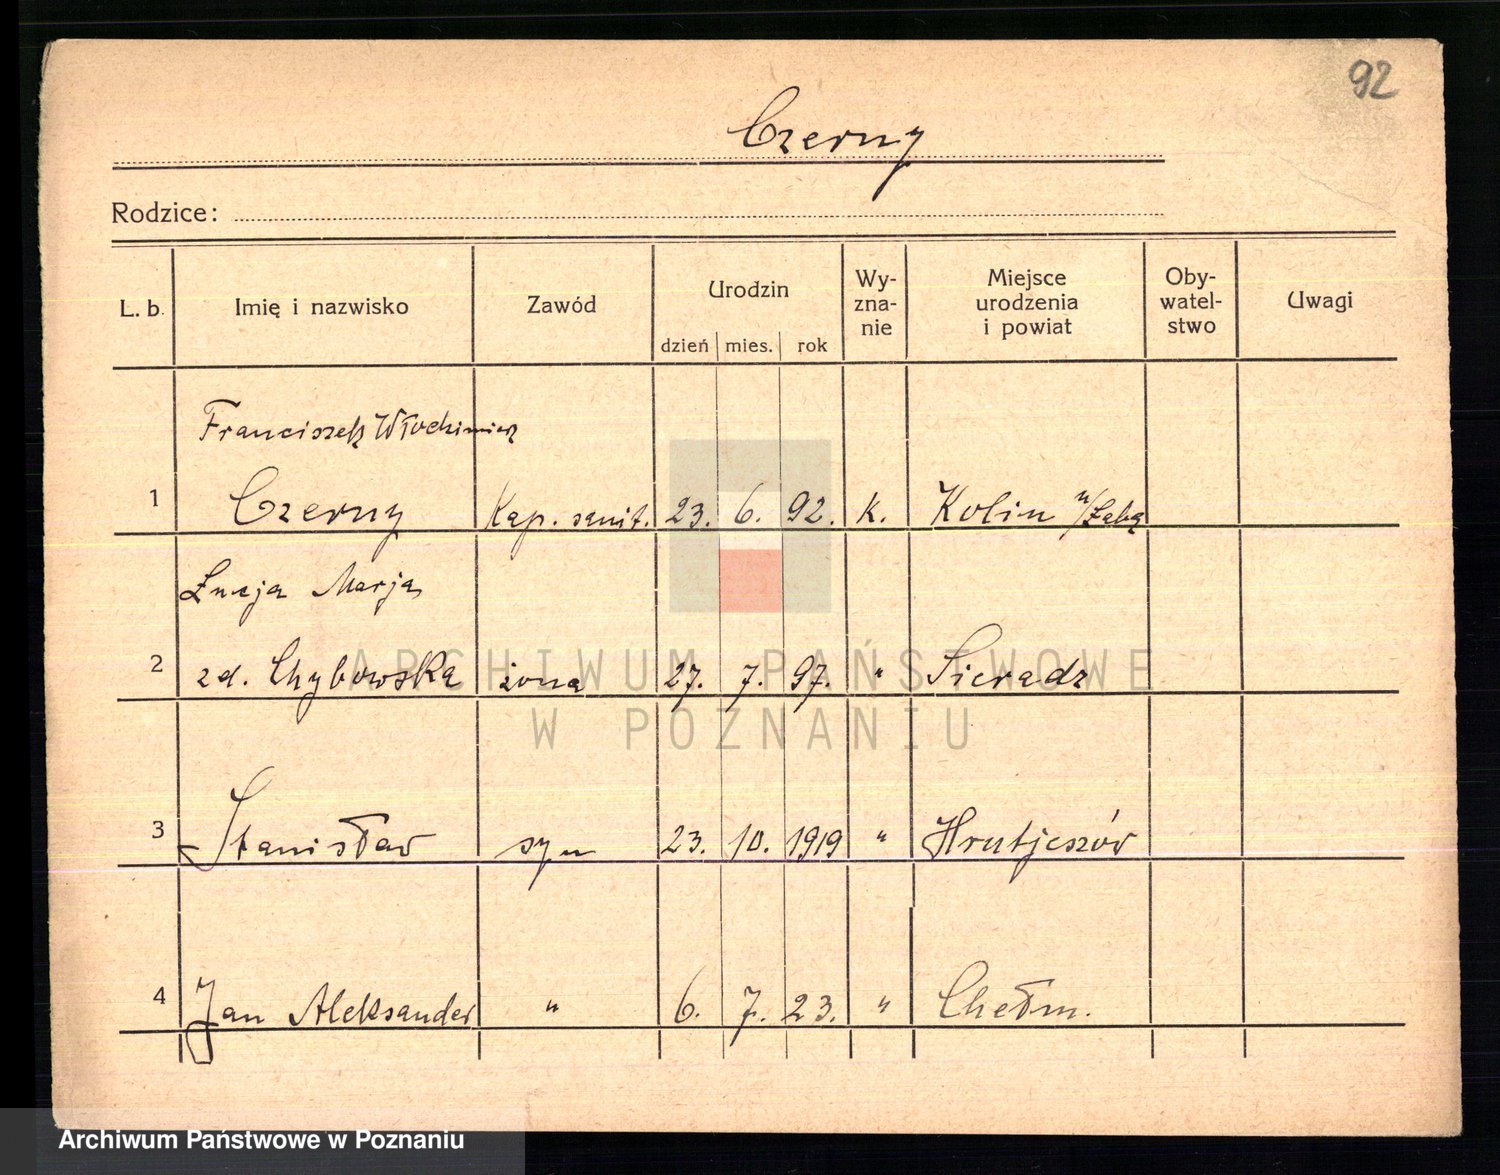 92
Czerny
Rodzice:
L. b. Imię i nazwisko Zawód Urodzin dzień mies. rok Wy-zna-nie Miejsce urodzenia i powiat Oby-watel-stwo Uwagi
Franciszek Włodzimierz
1 Czerny Kap. sanit. 23. 6. 92. k. Kolin n/Łabą
Łucja Marja
2 zd. Chybowska żona 27. 7. 97. " Sieradz
3 Stanisław syn 23. 10. 1919 " Hrubjeszów
4 Jan Aleksander " 6. 7. 23. " Chełm.
ARCHIWUM PAŃSTWOWE
W POZNANIU
Archiwum Państwowe w Poznaniu